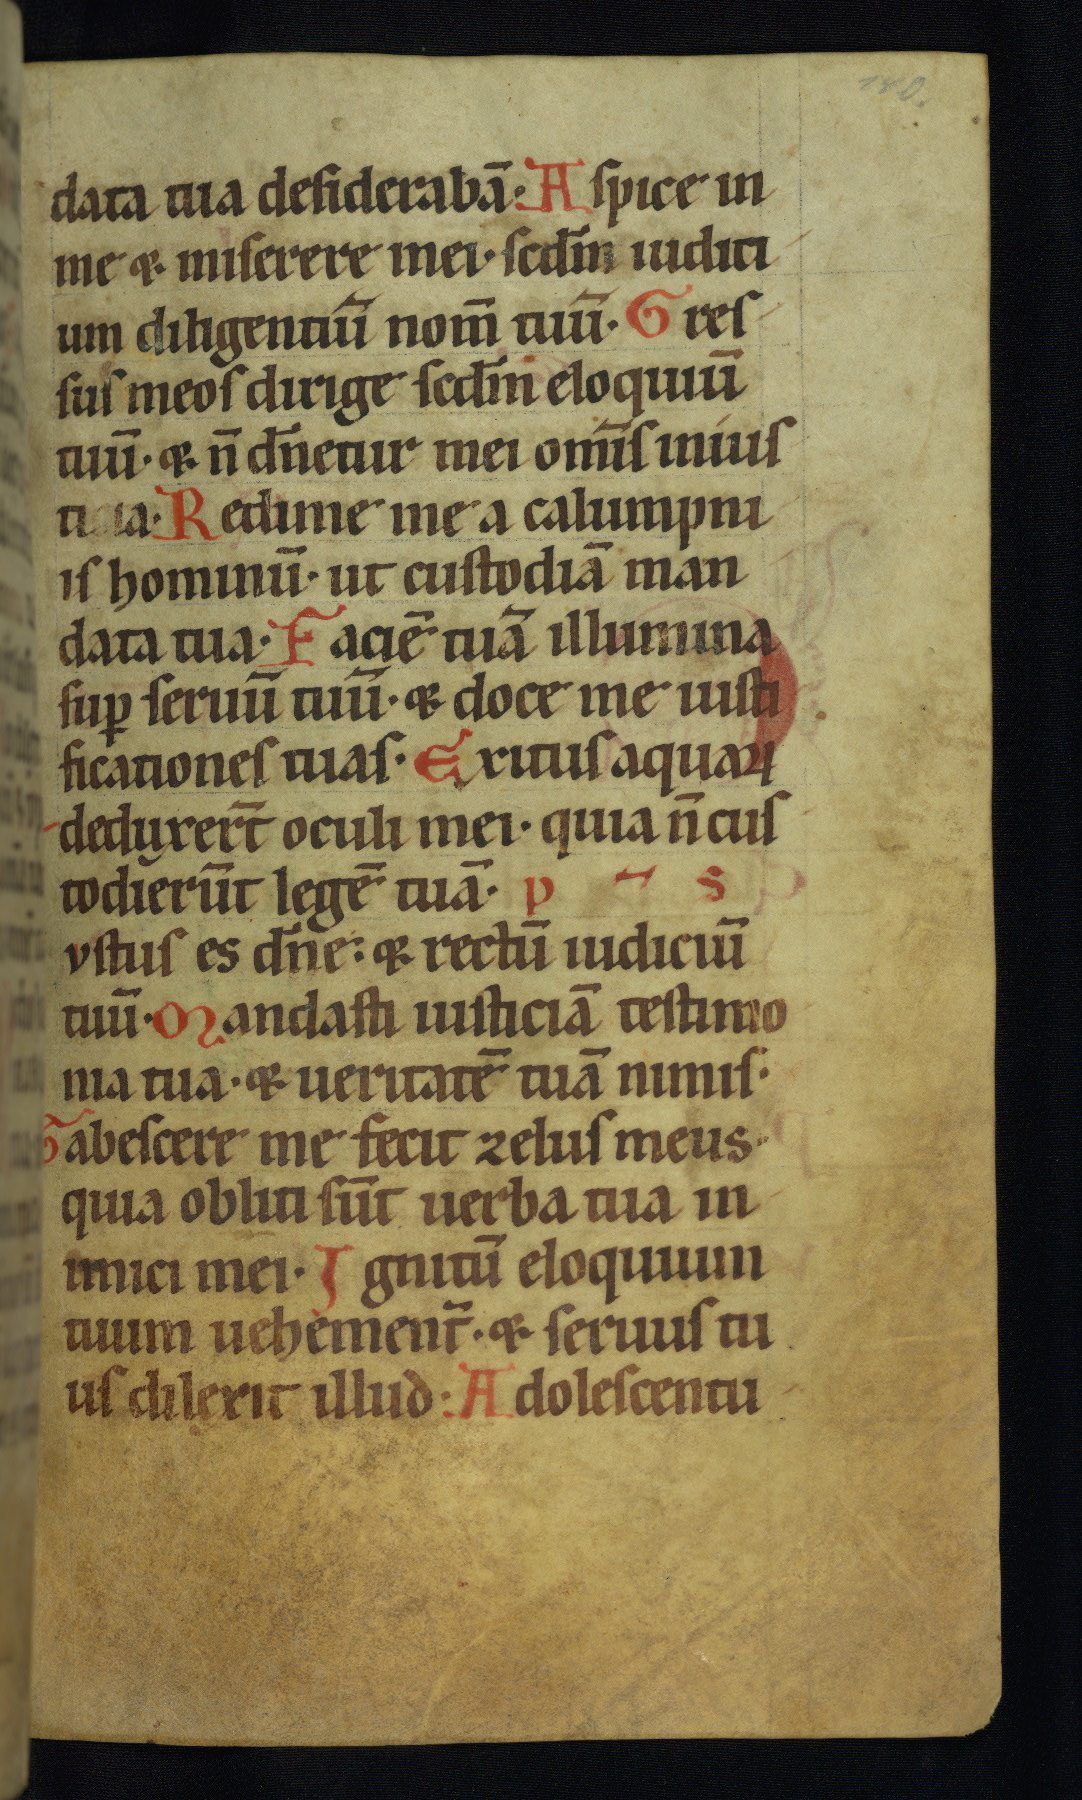 data tua desiderabā· Aspice in
me & miserere mei· scdm̄ iudici
um diligentiū nom̄ tuū· Gres
sus meos dirige scdm̄ eloquiū
tuū· & n̄ dn̄etur mei om̄is inius
ticia· Redime me a calumpni
is hominū· ut custodiā man
data tua· Faciē tuā illumina
suꝑ seruū tuū· & doce me iusti
ficationes tuas· Exitus aquaꝝ
deduxer̄t oculi mei· quia n̄ cus
todierūt legē tuā· p s
vstus es dn̄e: & rectū iudiciū
tuū· Mandasti iusticiā testimo
nia tua· & ueritatē tuā nimis·
Tabescere me fecit zelus meus·
quia obliti sūt uerba tua in
imici mei· Ignitū eloquium
tuum uehement̄· & seruus tu
us dilexit illud· Adolescentu